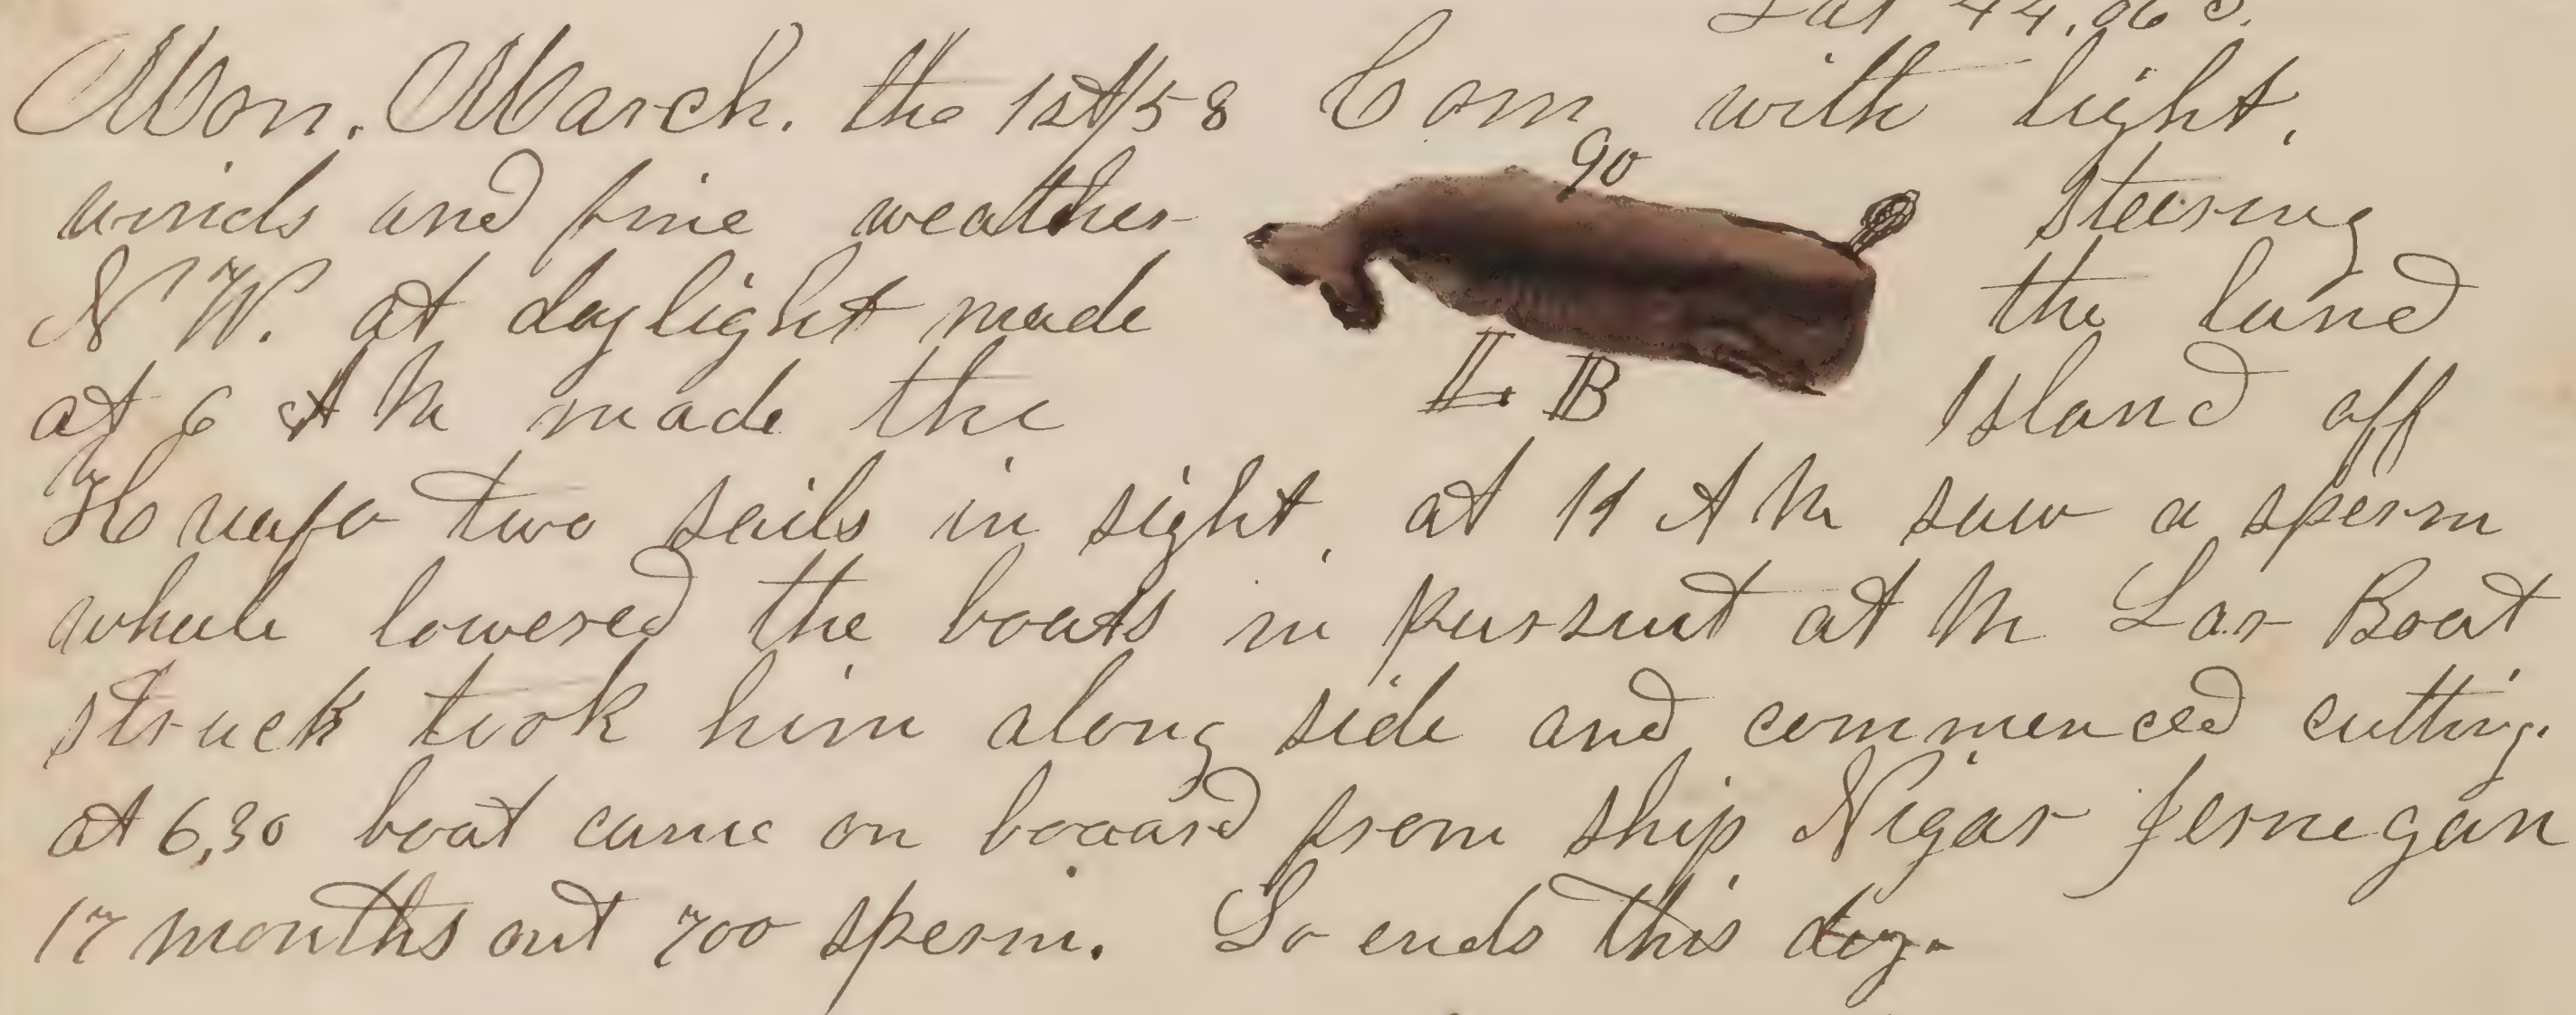 Lat 44.06 S.
Mon. March. the 1st/58 Com with light,
90
winds and fine weather steering
N W. at daylight made the land
L B
at 6 A M made the Island off
Huafo two sails in sight, at 11 A M saw a sperm
whale lowered the boats in pursuit at M Lar Boat
struck took him along side and commenced cutting.
at 6,30 boat came on boaard from ship Nigar Jernegan
17 months out 700 sperm. So ends this day-